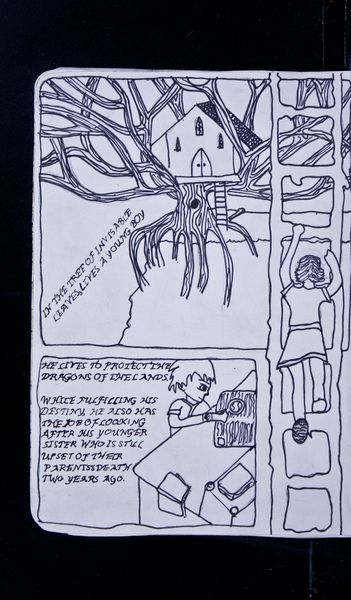 IN THE TREE OF INVISABLE
LEAVES, LIVES A YOUNG BOY
HE LIVES TO PROTECT THE
DRAGONS OF THE LANDS.
WHILE FULFILLING HIS
DESTINY, HE ALSO HAS
THE JOB OF LOOKING
AFTER HIS YOUNGER
SISTER WHO IS STILL
UPSET OF THEIR
PARENTSS DEATH
TWO YEARS AGO.